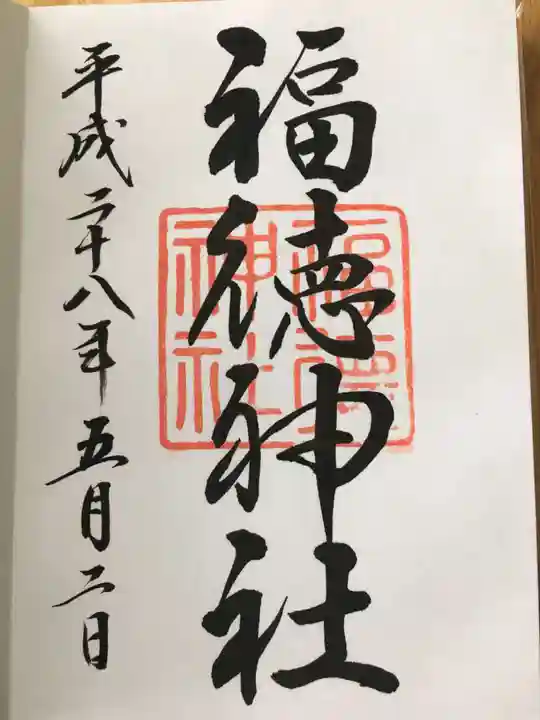 福徳神社
福徳
神社
平成二十八年五月二日